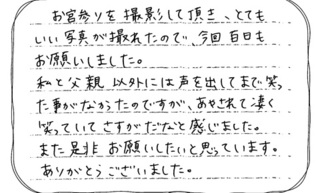 お宮参りを撮影して頂き、とても
いい写真が撮れたので、今回百日も
お願いしました。
私と父親以外には声を出してまで笑っ
た事がなかったのですが、あやされて凄く
笑っていてさすがだなと感じました。
また是非お願いしたいと思っています。
ありがとうございました。